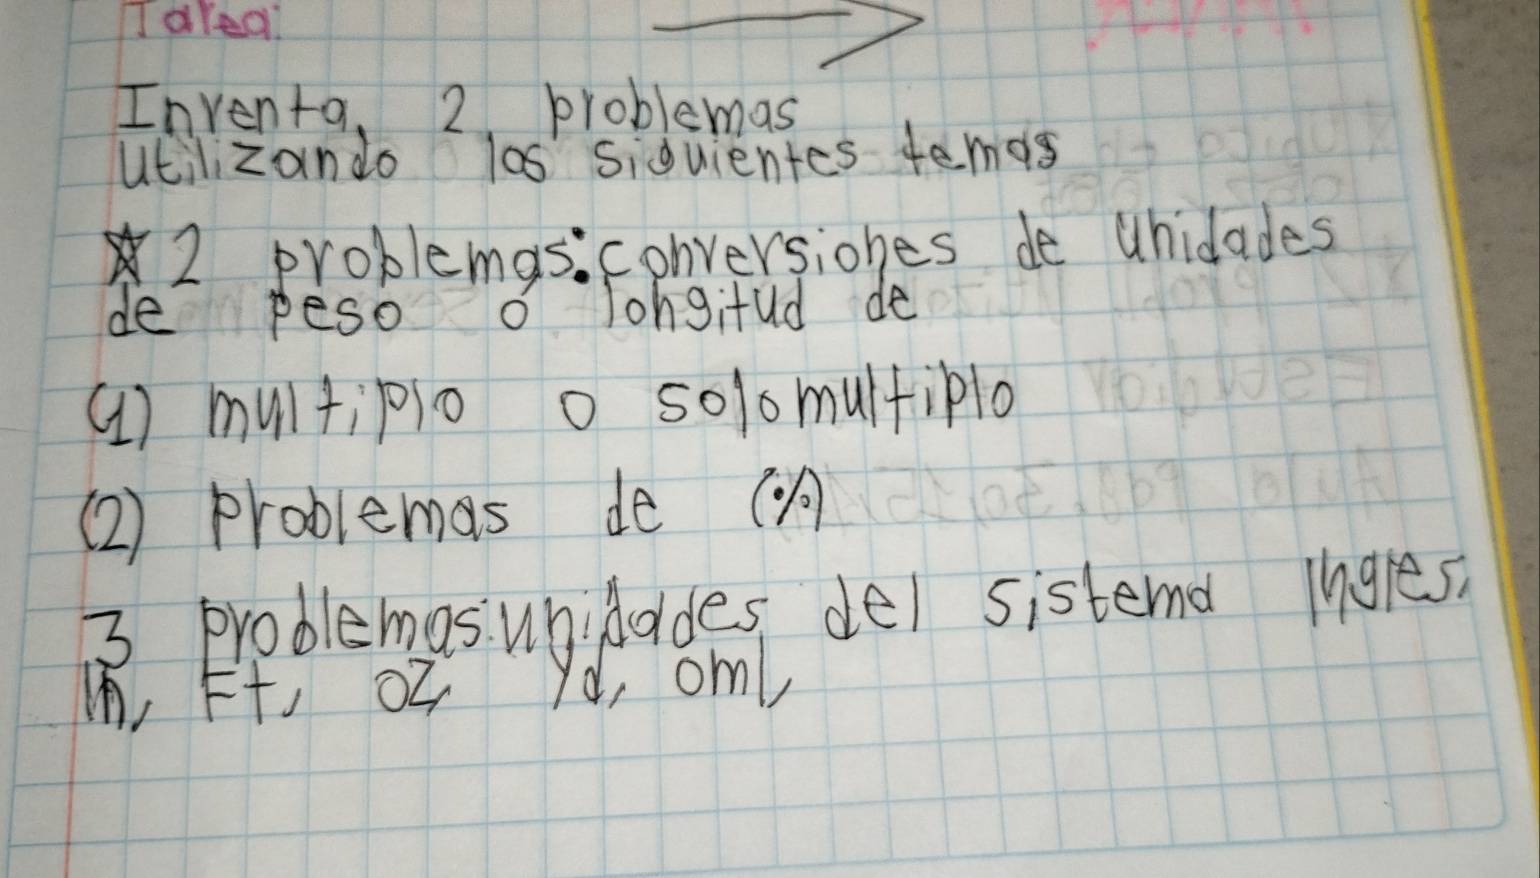 Tarea:
Inventa, 2 problemas
utilizando los siguientes temas
☆2 problemas: conversiones de unidades
de peso o longitud de
(1) multiplo o solomultiplo
(2) problemas de (%)
3 problemas: unidades del sistema Ingles,
in, Ft, oz, yd, oml,